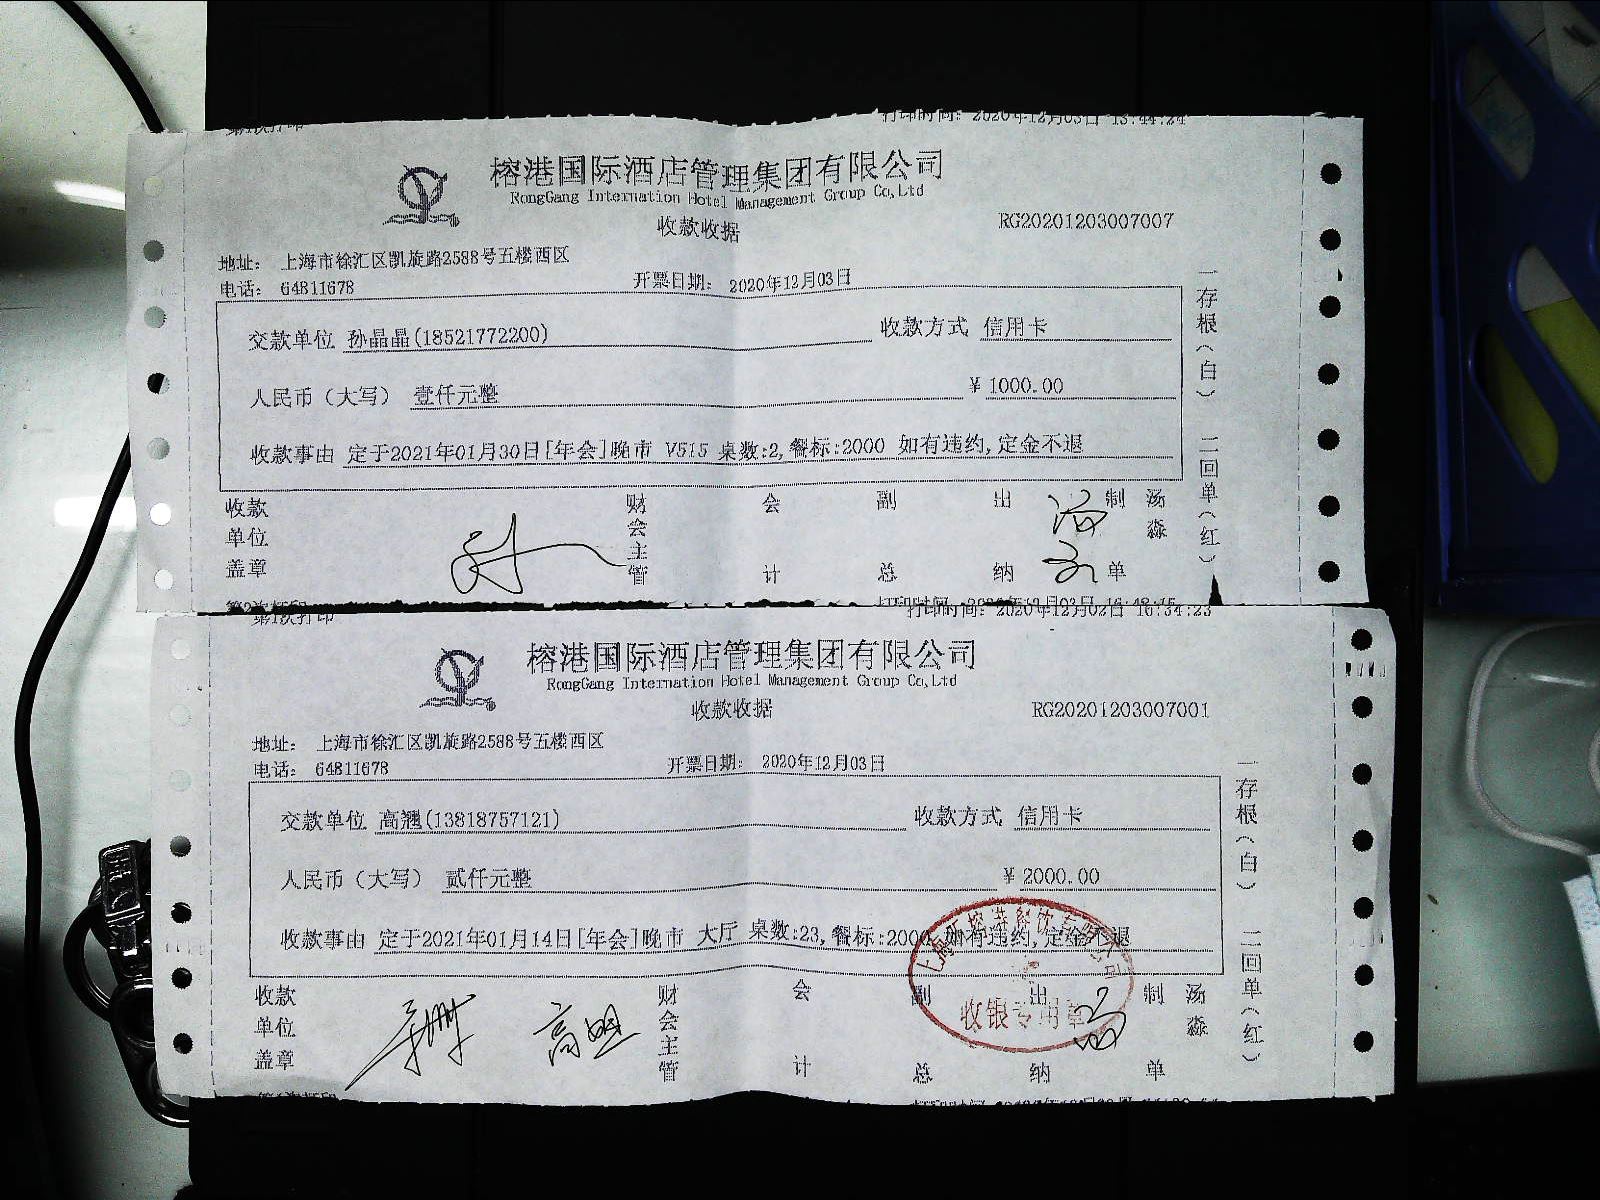 打印时间: 2020年12月03日 13:44:24
榕港国际酒店管理集团有限公司
RongGang Internation Hotel Management Group Co,Ltd
收款收据
RG20201203007007
地址: 上海市徐汇区凯旋路2588号五楼西区
电话: 64811678
开票日期: 2020年12月03日
交款单位 孙晶晶(18521772200)
收款方式 信用卡
人民币(大写) 壹仟元整
¥ 1000.00
收款事由 定于2021年01月30日[年会]晚市 V515 桌数:2,餐标:2000 如有违约,定金不退
一存根(白) 二回单(红)
收款单位盖章
财会主管
会计
副总
出纳
制单
汤淼
第1次打印
打印时间: 2020年12月02日 16:34:23
榕港国际酒店管理集团有限公司
RongGang Internation Hotel Management Group Co,Ltd
收款收据
RG20201203007001
地址: 上海市徐汇区凯旋路2588号五楼西区
电话: 64811678
开票日期: 2020年12月03日
交款单位 高翘(13818757121)
收款方式 信用卡
人民币(大写) 贰仟元整
¥ 2000.00
收款事由 定于2021年01月14日[年会]晚市 大厅 桌数:23,餐标:2000 如有违约,定金不退
一存根(白) 二回单(红)
收银专用章
收款单位盖章
财会主管
会计
副总
出纳
制单
汤淼